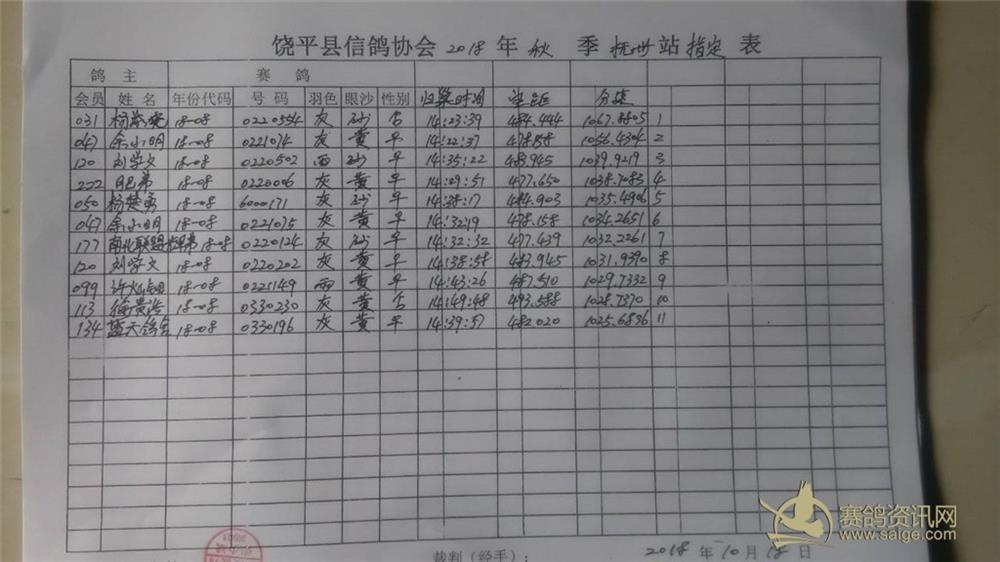 饶平县信鸽协会 2018 年 秋 季 抚州 站 指定 表
鸽 主 赛 鸽
会员 姓 名 年份代码 号 码 羽色 眼沙 性别 归巢时间 空距 分速
031 18-08 0220554 灰 沙 14:23:39 484.444 1067.8805 1
047 余小明 18-08 0221074 灰 黄 平 14:22:37 478.158 1056.4304 2
120 刘学文 18-08 0220502 雨 沙 平 14:35:22 483.945 1039.9219 3
222 18-08 0220006 灰 黄 平 14:09:51 477.650 1038.7083 4
050 杨楚勇 18-08 6000171 灰 沙 平 14:38:17 484.903 1035.4906 5
047 余小明 18-08 0221075 灰 黄 平 14:32:19 478.158 1034.2651 6
177 南北联盟 18-08 0220124 灰 沙 平 14:32:32 477.439 1032.2261 7
120 刘学文 18-08 0220202 灰 黄 平 14:38:58 483.945 1031.9390 8
099 18-08 0221149 雨 黄 平 14:43:26 487.510 1029.7332 9
113 徐贵浩 18-08 0330230 灰 黄 14:49:48 493.588 1028.7370 10
134 蓝天鸽舍 18-08 0330196 灰 黄 平 14:39:57 482.020 1025.6836 11
裁判（经手）： 2018 年 10 月 18 日
赛鸽资讯网
www.saige.com